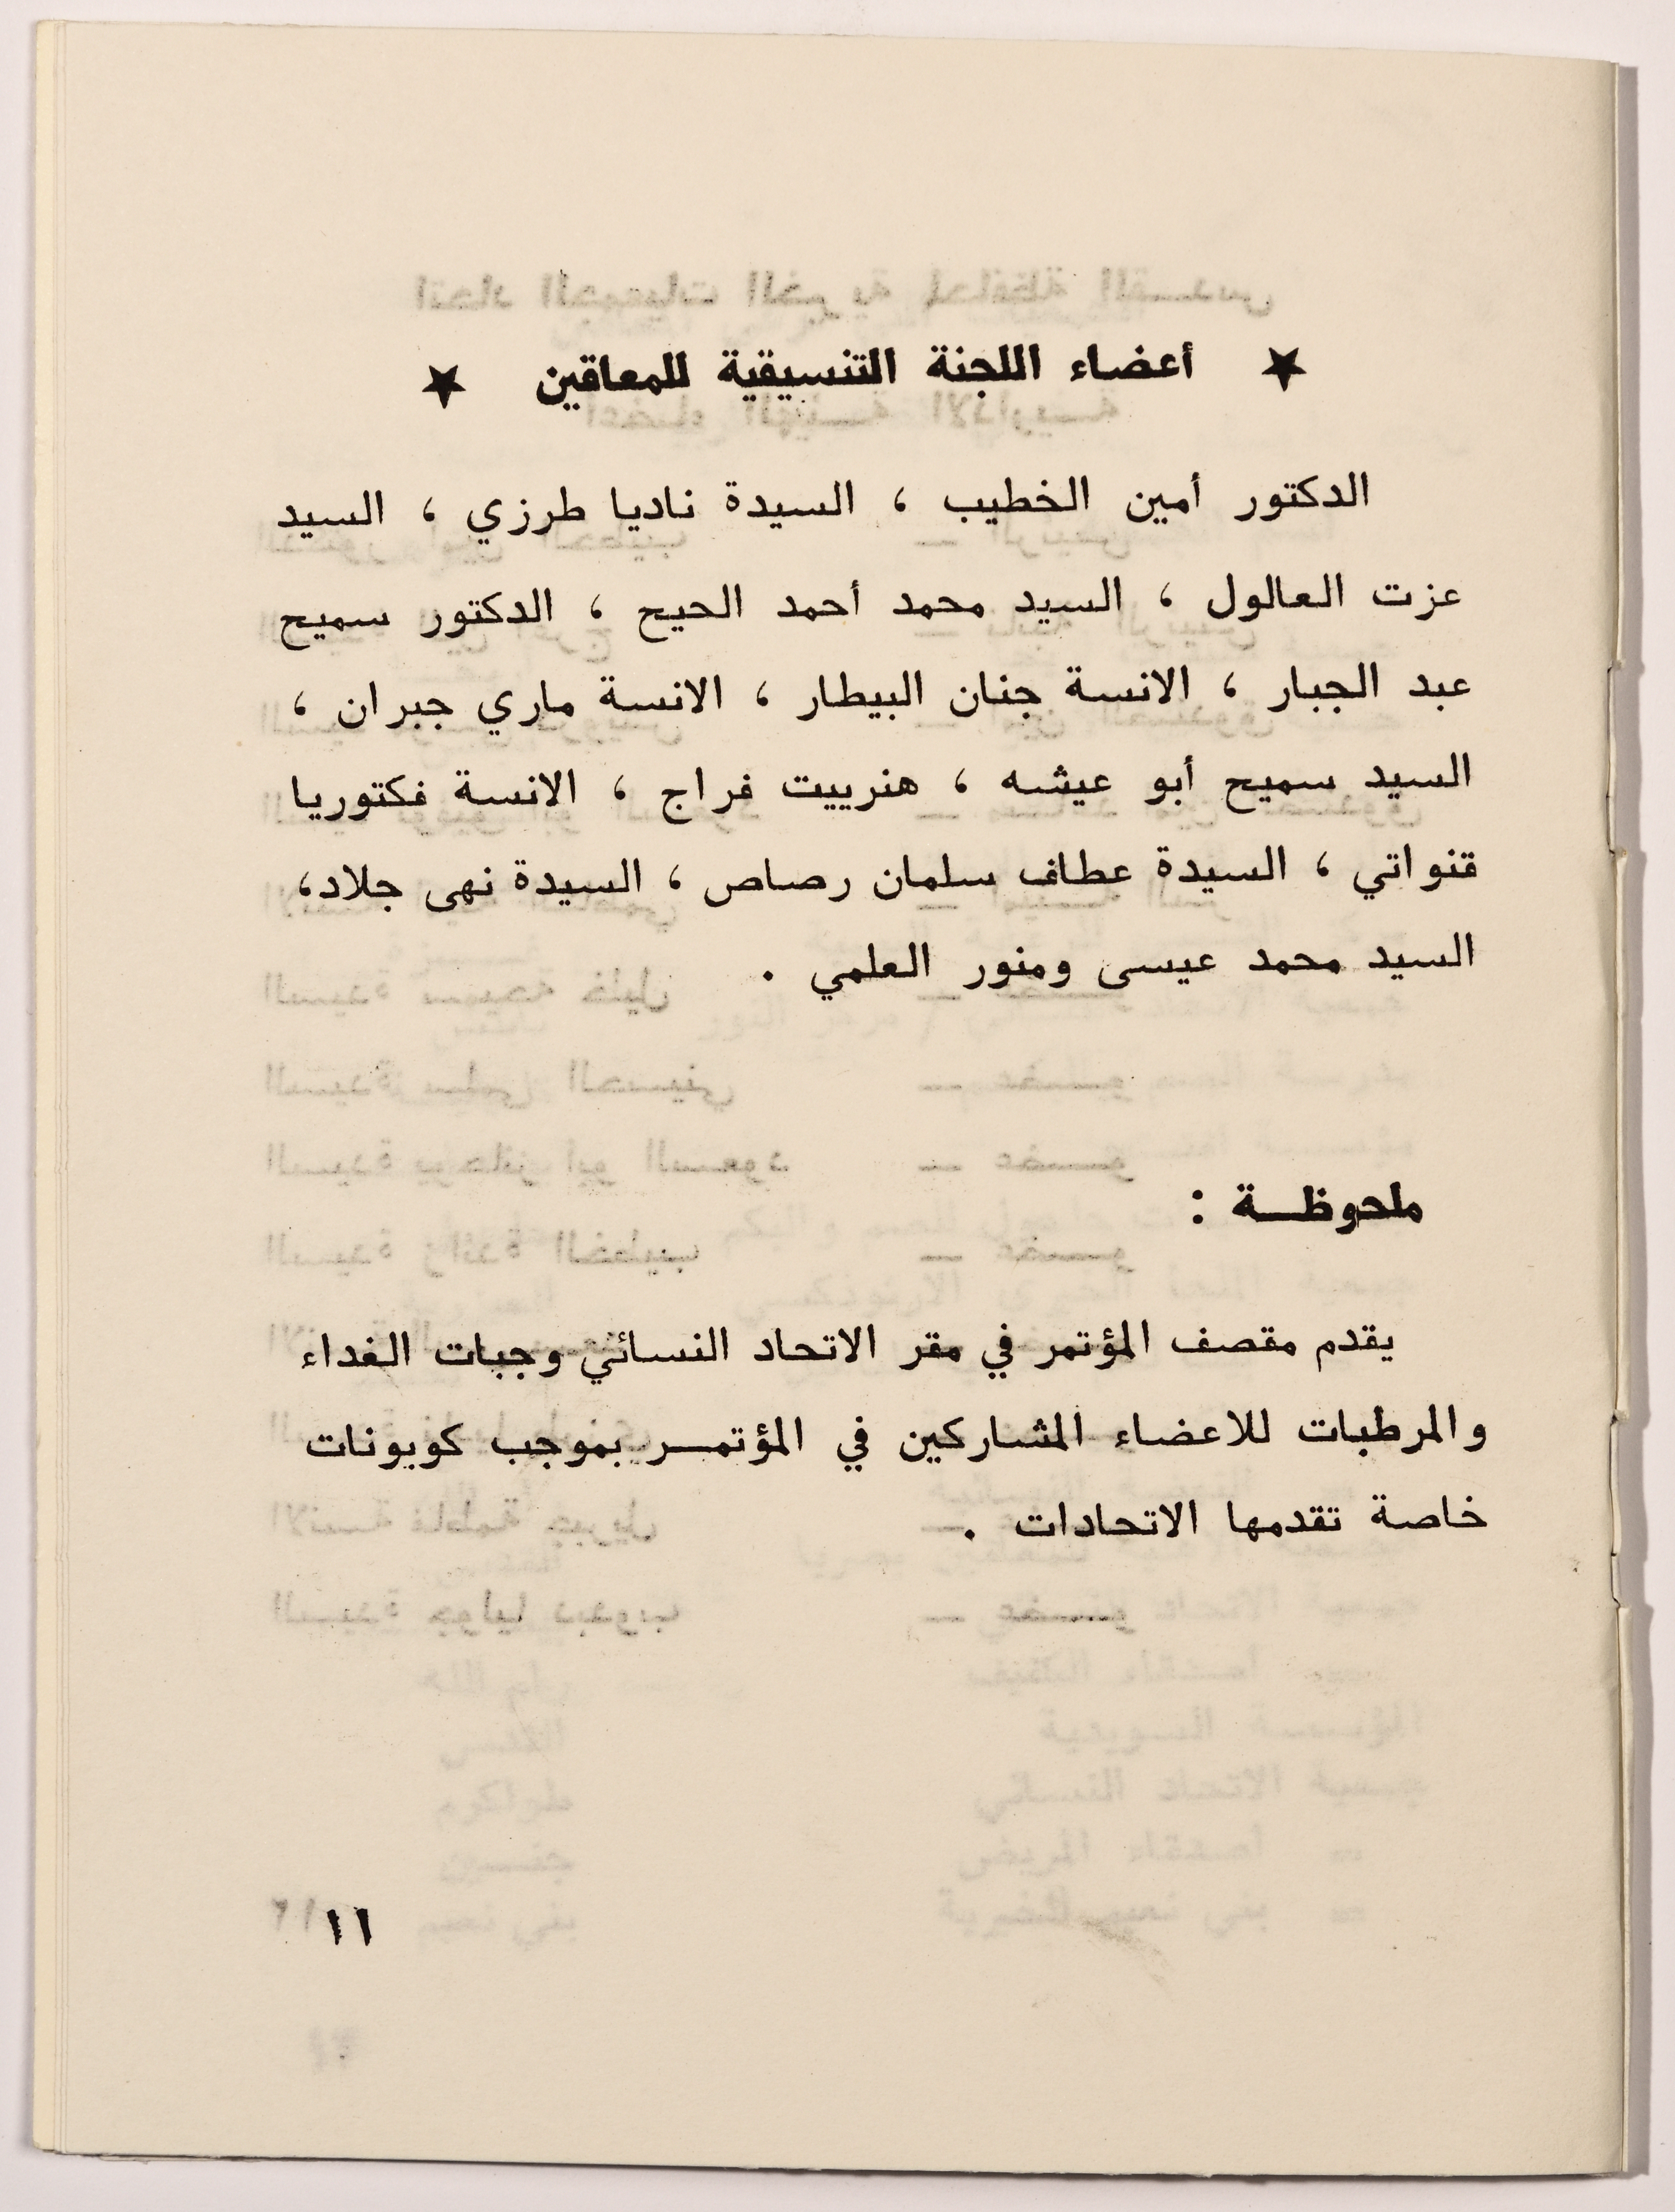 ★ أعضاء اللجنة التنسيقية للمعاقين ★
الدكتور أمين الخطيب ، السيدة ناديا طرزي ، السيد
عزت العالول ، السيد محمد أحمد الحيح ، الدكتور سميح
عبد الجبار ، الانسة جنان البيطار ، الانسة ماري جبران ،
السيد سميح أبو عيشه ، هنرييت فراج ، الانسة فكتوريا
قنواتي ، السيدة عطاف سلمان رصاص ، السيدة نهى جلاد،
السيد محمد عيسى ومنور العلمي .
ملحوظــة :
يقدم مقصف المؤتمر في مقر الاتحاد النسائي وجبات الغداء
والمرطبات للاعضاء المشاركين في المؤتمــر بموجب كوبونات
خاصة تقدمها الاتحادات .
١١